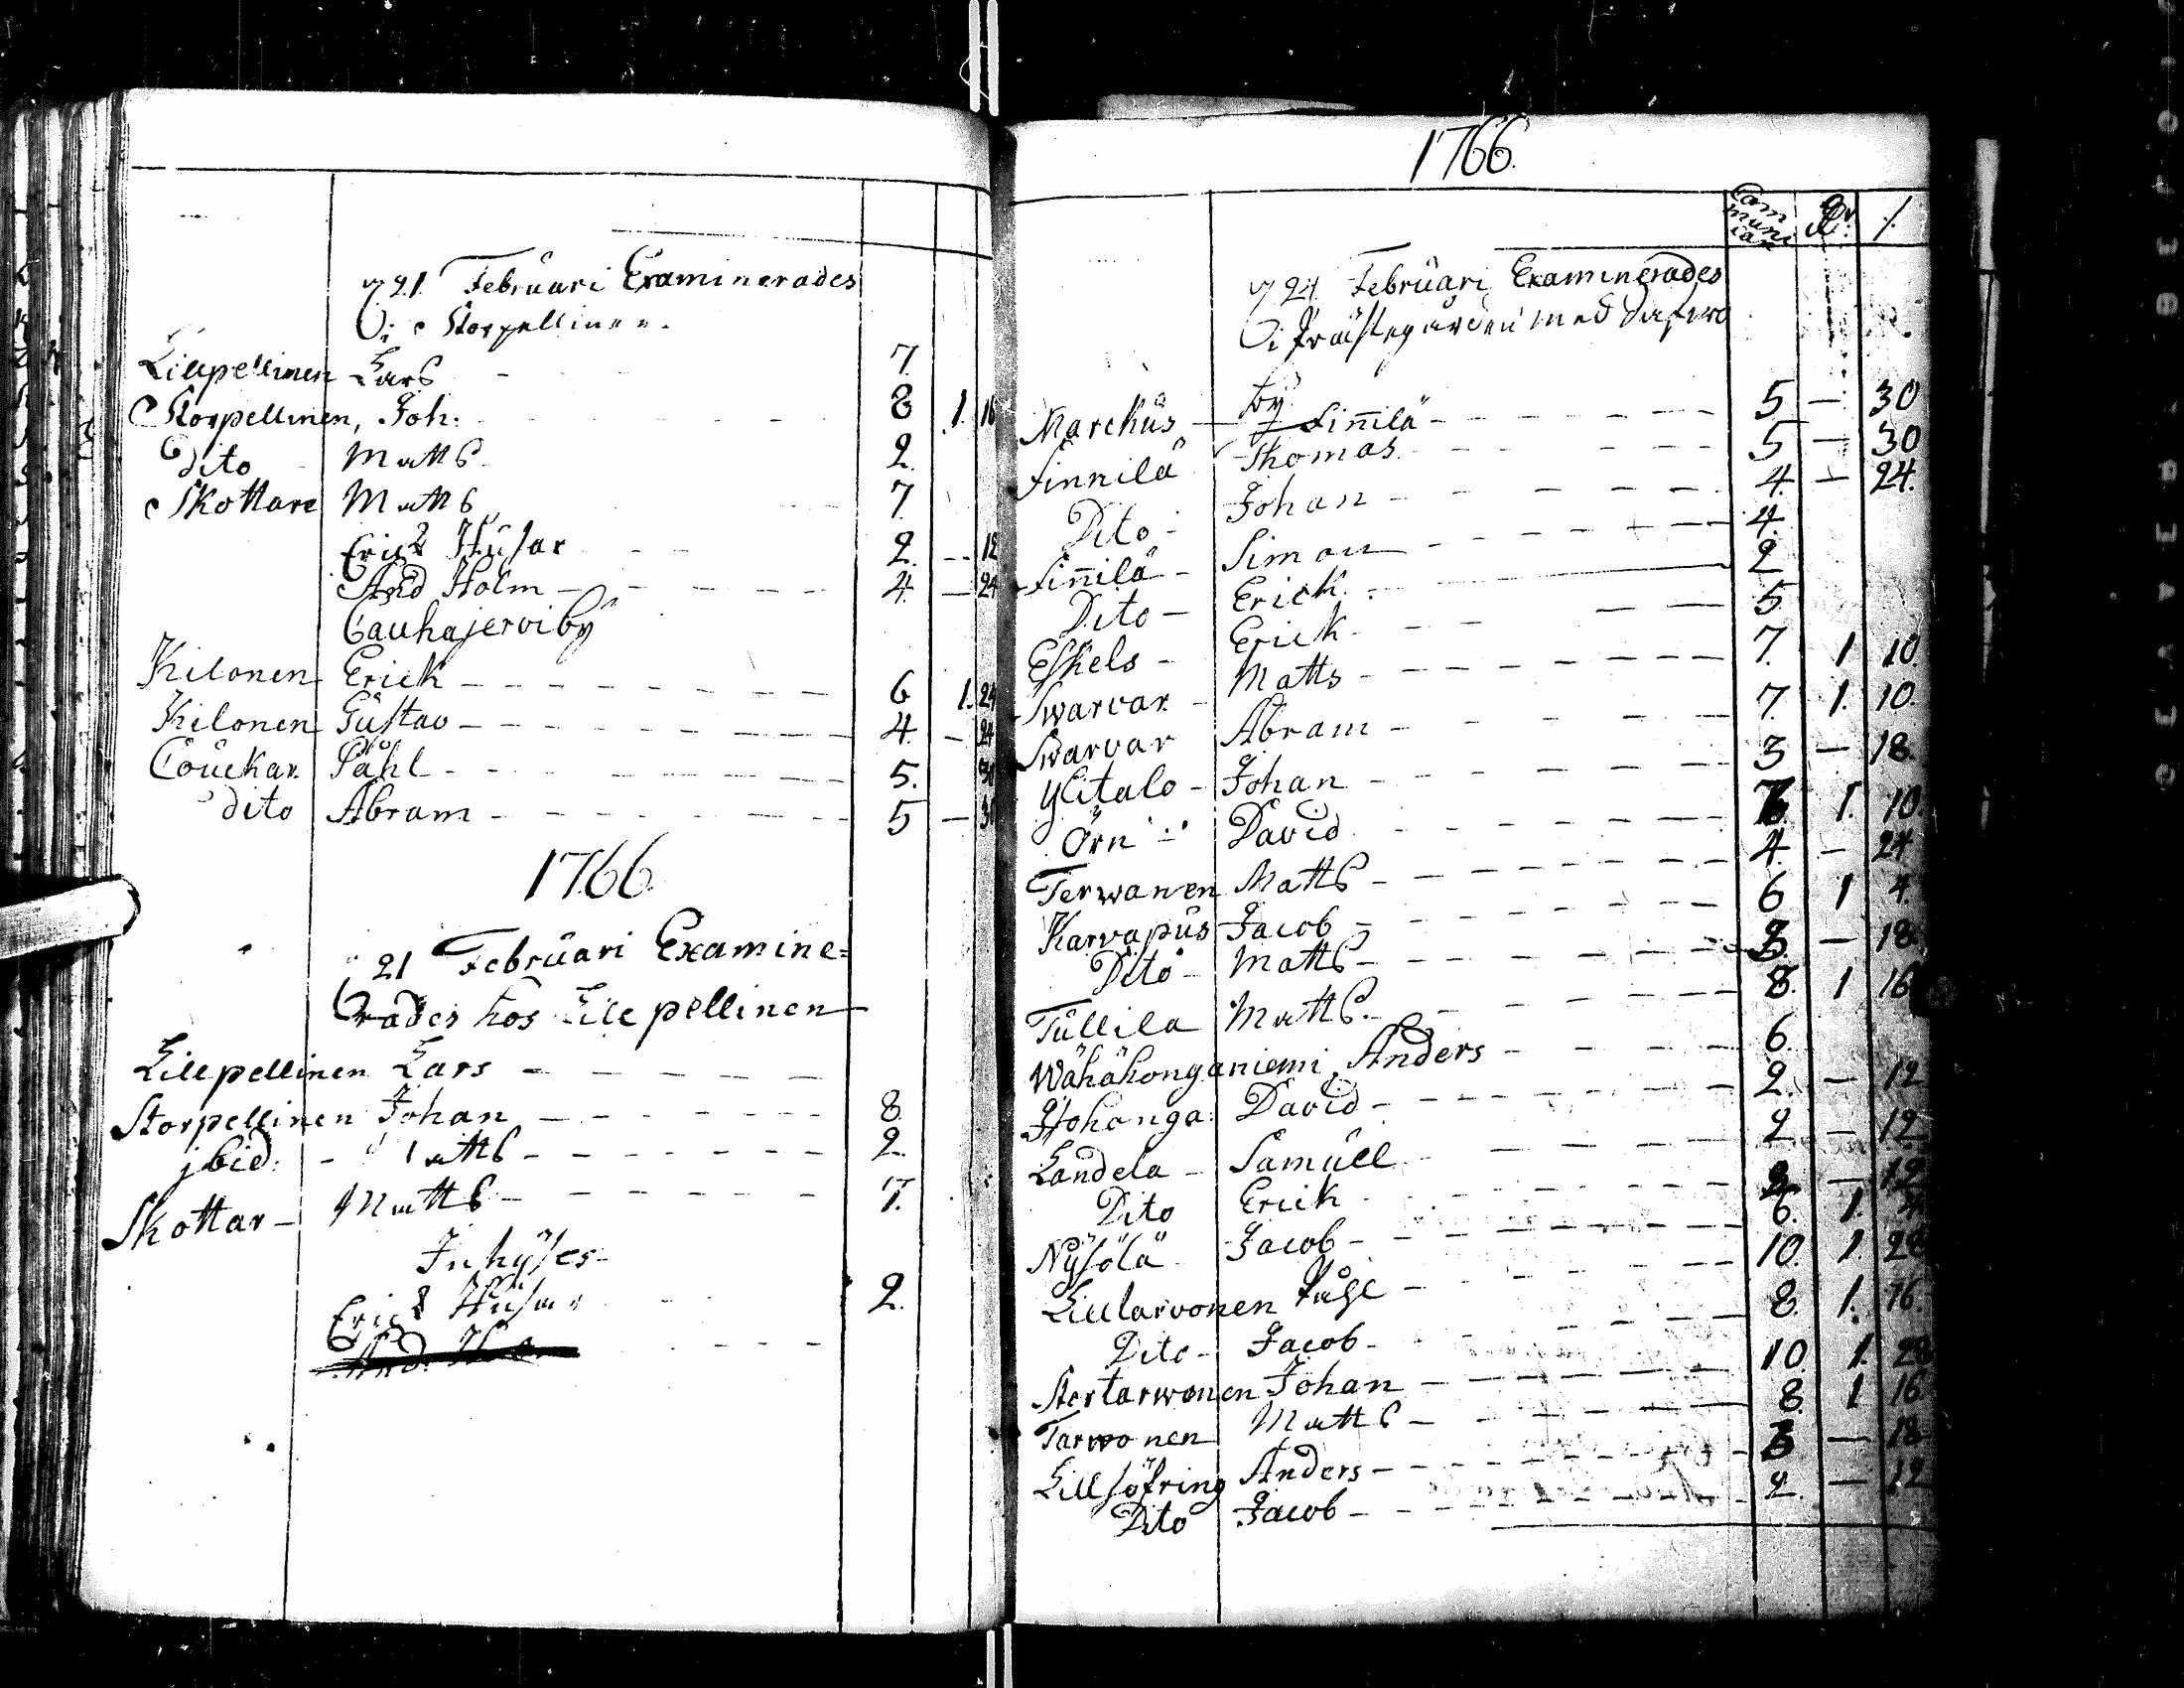 21. Februari Examinerades
i Storpellinen.
Lillpellinen Lars 7.
Storpellinen, Joh: 8 1. 16
Dito Matts 2.
Skottare Matts 7.
Erics Husar 2. 12
And Holm 4. 24
Cauhajerviby
Kilonen Erick 6 1. 24
Kilonen Gustav 4. 24
Påhl 5. 30
dito Abram 5 30
1766.
21 Februari Examine=
rades hos Lillpellinen
Lillpellinen Lars
Storpellinen Johan 8.
jbid. Matts 2.
Skottar Matts 7.
Inhyses
Eric Husar 2.
1766.
Communicar 1.
21 Februari Examinerades
i Prästegården med
by
Marckus Sinnilä 5 — 30
Sinnilä Thomas 5 — 30
Dito Johan 4. — 24.
Sinnilä Simon 4.
Dito Erick 2
Eskels Erick 5
Swarvar Matts 7. 1 10.
Swarvar Abram 7. 1. 10.
Ylitalo Johan 3 — 18.
Örn David 7 1. 10.
Terwanen Matts 4. — 24
Karvapus Jacob 6 1 4.
Dito Matts 3. — 18.
Tullila Matts 8. 1 16
Wähähonganiemi Anders 6.
Hohonga David 2. — 12
Landela Samuel 2 — 12
Dito Erick 2 — 12
Nysölä Jacob 6. 1. 4
Lilltarvonen Påhl 10. 1. 28
Dito Jacob 8. 1. 16.
Stortarwonen Johan 10. 1. 28
Tarwonen Matts 8. 1 16
Lillsöfring Anders 3 — 18
Dito Jacob 2. — 12